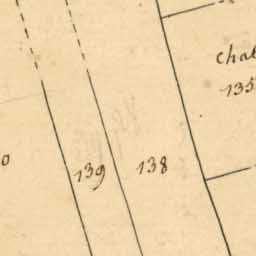 Chal
135
139
138